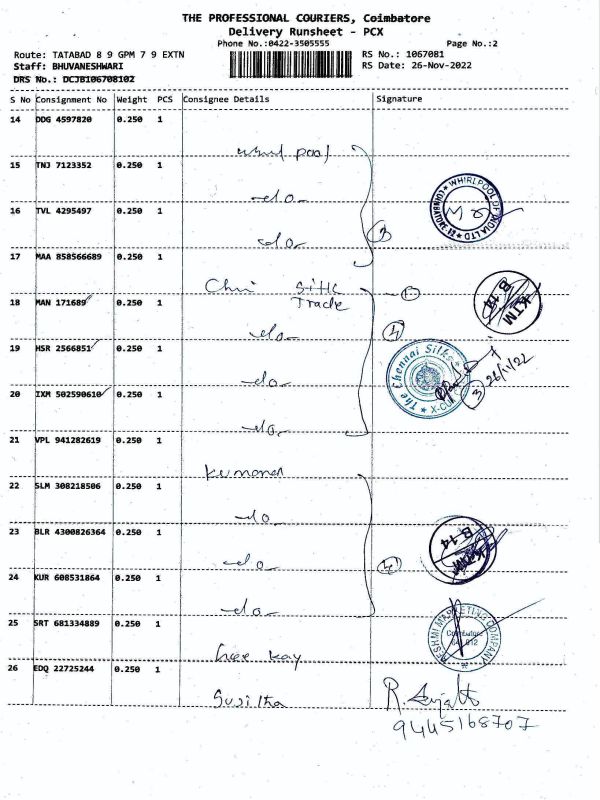 THE PROFESSIONAL COURIERS, Coimbatore
Delivery Runsheet - PCX
Phone No.:0422-3505555
Page No.:2
Route: TATABAD 8 9 GPM 7 9 EXTN
RS No.: 1067081
Staff: BHUVANESHWARI
RS Date: 26-Nov-2022
DRS No.: DCJB106708102
S No Consignment No Weight PCS Consignee Details Signature
14 DDG 4597820 0.250 1
Whirl pool
15 TNJ 7123352 0.250 1
-do-
WHIRLPOOL OF INDIA LTD
16 TVL 4295497 0.250 1
-do-
3
17 MAA 858566689 0.250 1
Silk
Trade
18 MAN 171689 0.250 1
KTM
B-14
-do-
4
19 HSR 2566851 0.250 1
The Chennai Silks
26/11/22
-do-
3
20 IXM 502590610 0.250 1
-do-
21 VPL 941282619 0.250 1
22 SLM 308218506 0.250 1
-do-
23 BLR 4300826364 0.250 1
B-14
KTM
-do-
4
24 KUR 608531864 0.250 1
-do-
25 SRT 681334889 0.250 1
MARKETING COMPANY
Coimbatore
kay
26 EDQ 22725244 0.250 1
R.
9445168707